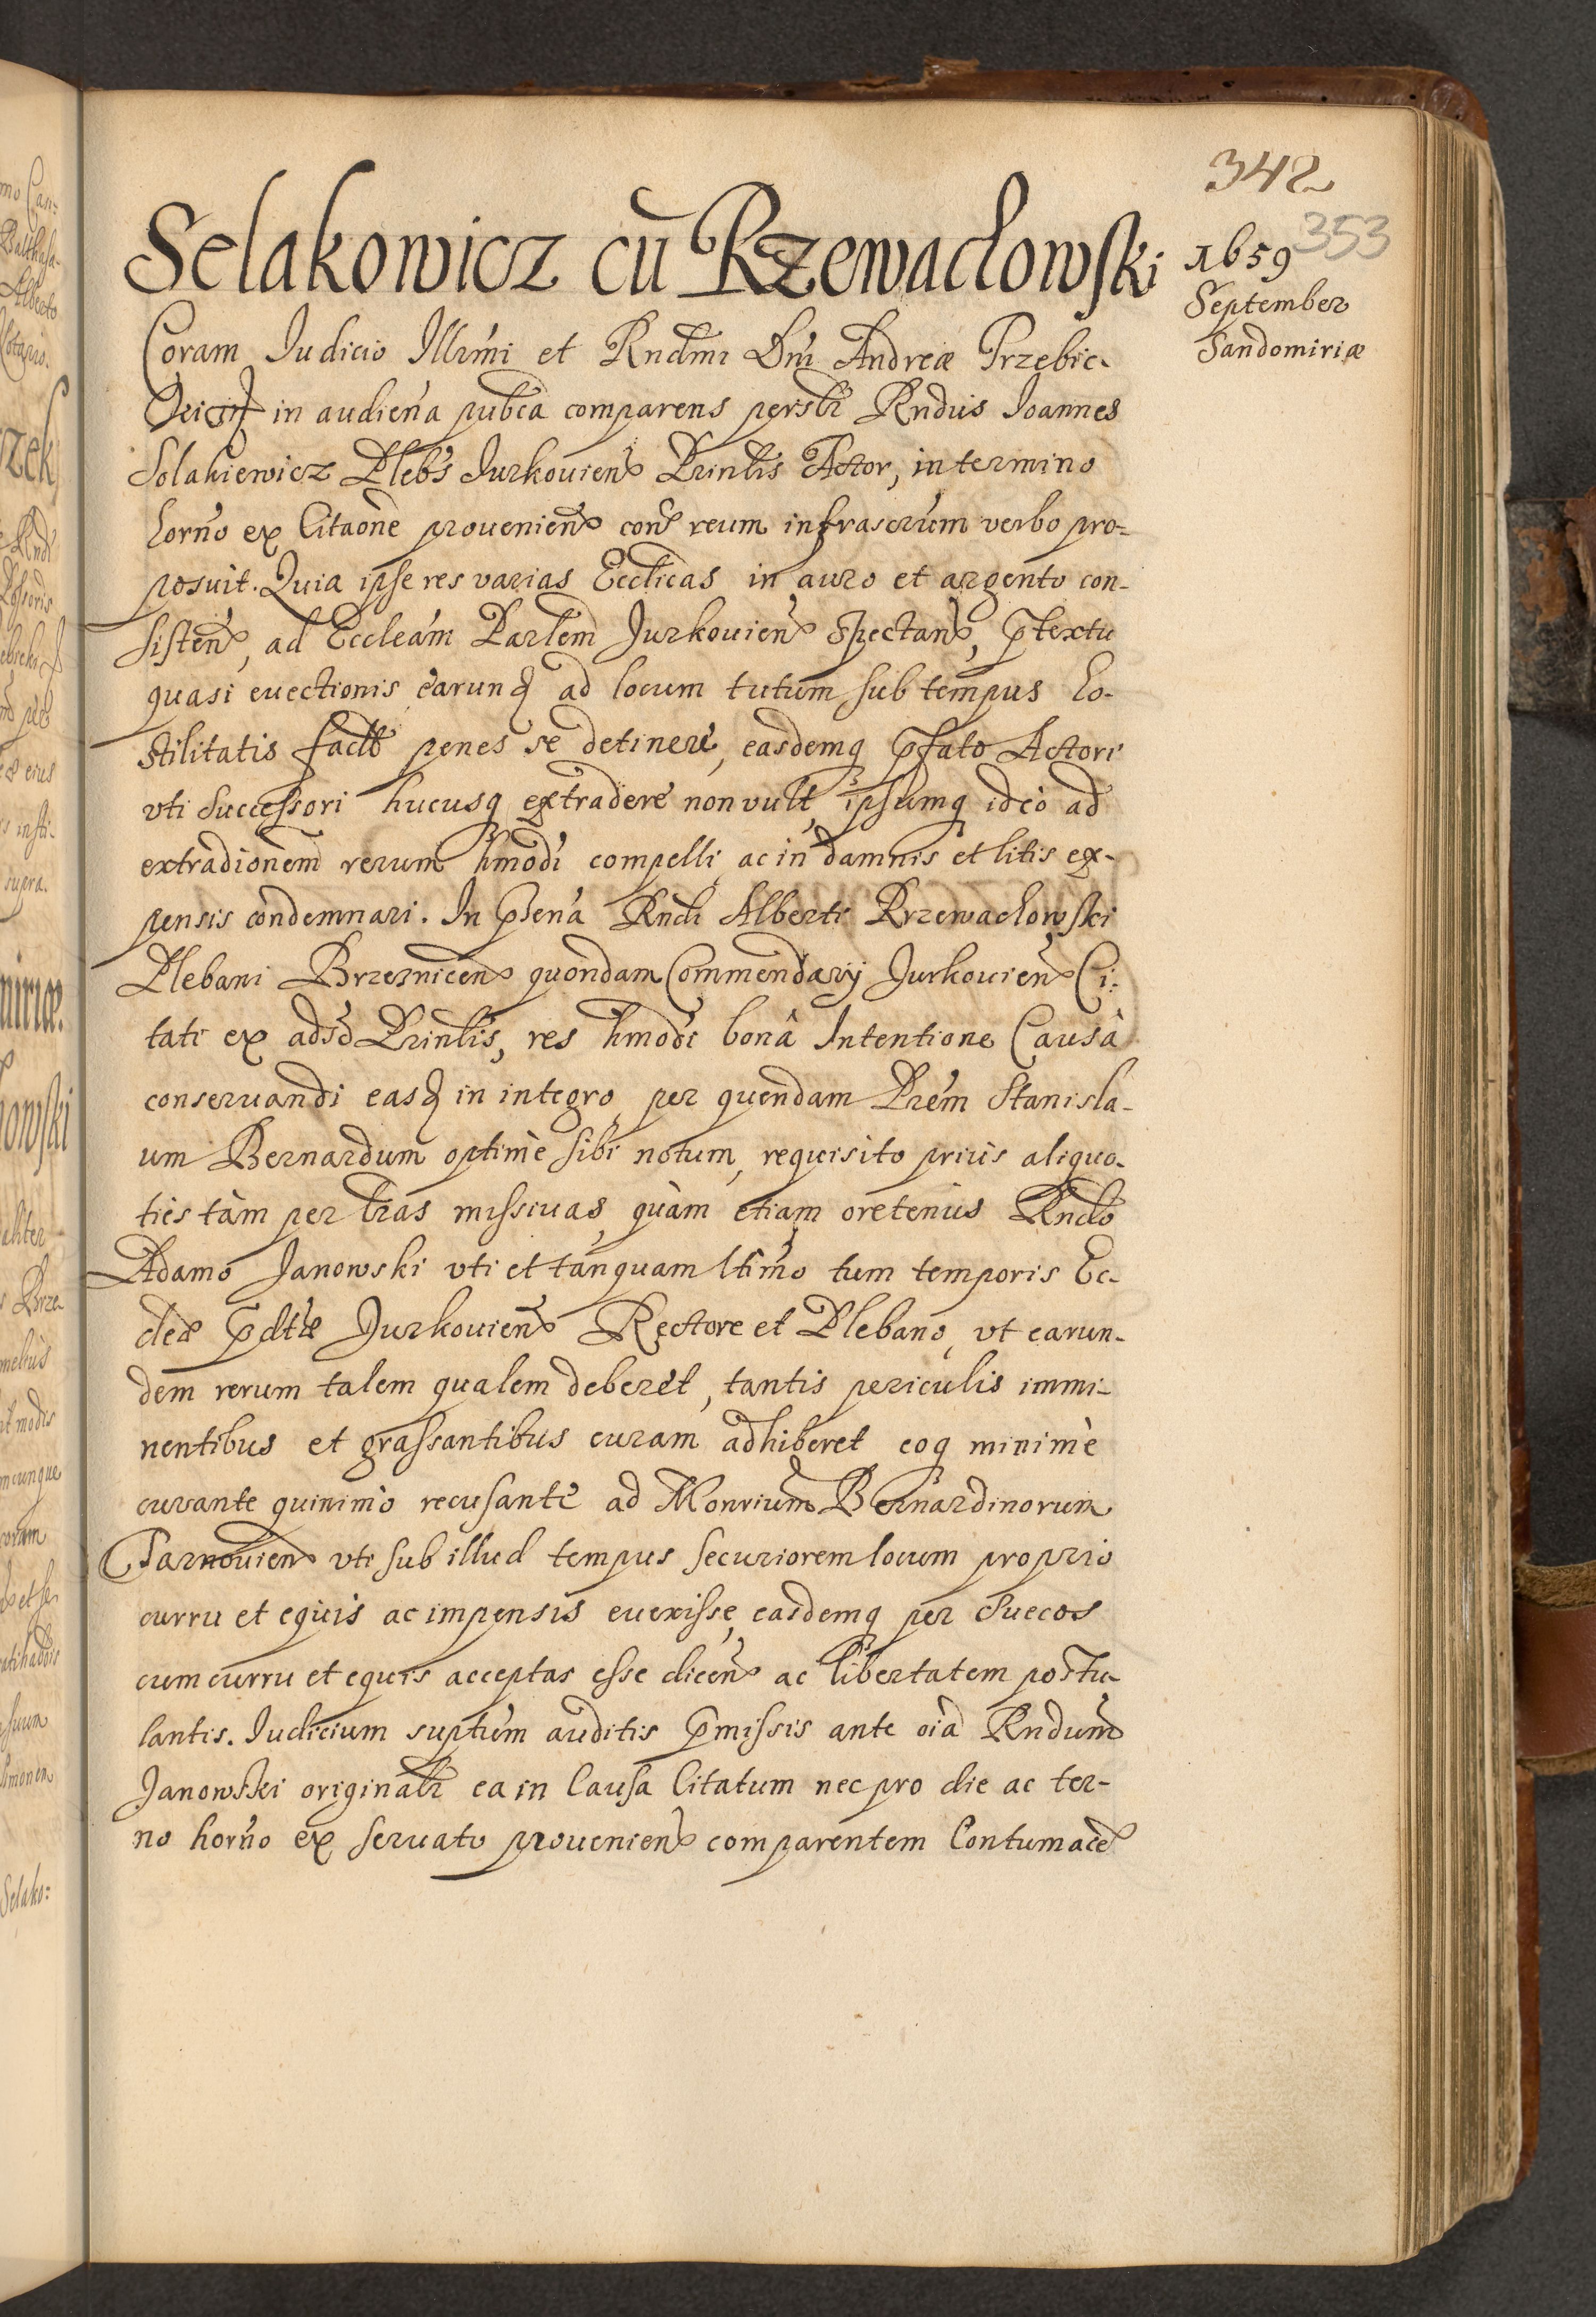 342
353
1659
September
Sandomiriæ
Selakowicz cū Rzewachowski
Coram Judicio Illrmi et Rndmi Dni Andreæ Trzebic-
in audiena pubca comparens persłr Rndus Joannes
Solakiewicz Plebs Jurkouien Prinlis Actor, in termino
horno ex Citaone prouenien con reum infrascrum verbo pro-
posuit. Quia ipse res varias Ecclicas in auro et argento con-
sisten, ad Eccleam Parlem Jurkouien spectan, ptextu
quasi euectionis earunq ad locum tutum sub tempus ho-
stilitatis penes se detinere, easdemq pfato Actori
vti Successori hucusq extradere non vult, ipsumq ideò ad
extradionem rerum hmodi compelli, ac in damnis et litis ex-
pensis condemnari. In psena Rndi Alberti Rrzewachowski
Plebani Brzeznicen quondam Commendarij Jurkouien Ci-
tati ex adso Prinlis, res hmodi bonâ Intentione Causâ
conseruandi easq in integro, per quendam Prem Stanisla-
um Bernardum optimè sibi notum, requisito priùs aliquo-
ties tàm per lras missiuas, quàm etiam oretenùs Rndo
Adamo Janowski vti et tanquam ltimo tum temporis Ec-
cleæ pdtæ Jurkouien Rectore et Plebano, vt earun-
dem rerum talem qualem deberet, tantis periculis immi-
nentibus et grassantibus curam adhiberet eoq minimè
curante quinimò recusante ad Monrium Bernardinorum
Tarnouien vti sub illud tempus securiorem locum proprio
curru et equis ac impensis euexisse, easdemq per Suecos
cum curru et equis acceptas esse dicen ac libertatem postu-
lantis. Judicium suptum auditis pmissis ante oia Rndum
Janowski originalr ea in Causa Citatum nec pro die ac ter-
no horno ex seruato prouenien comparentem Contumace